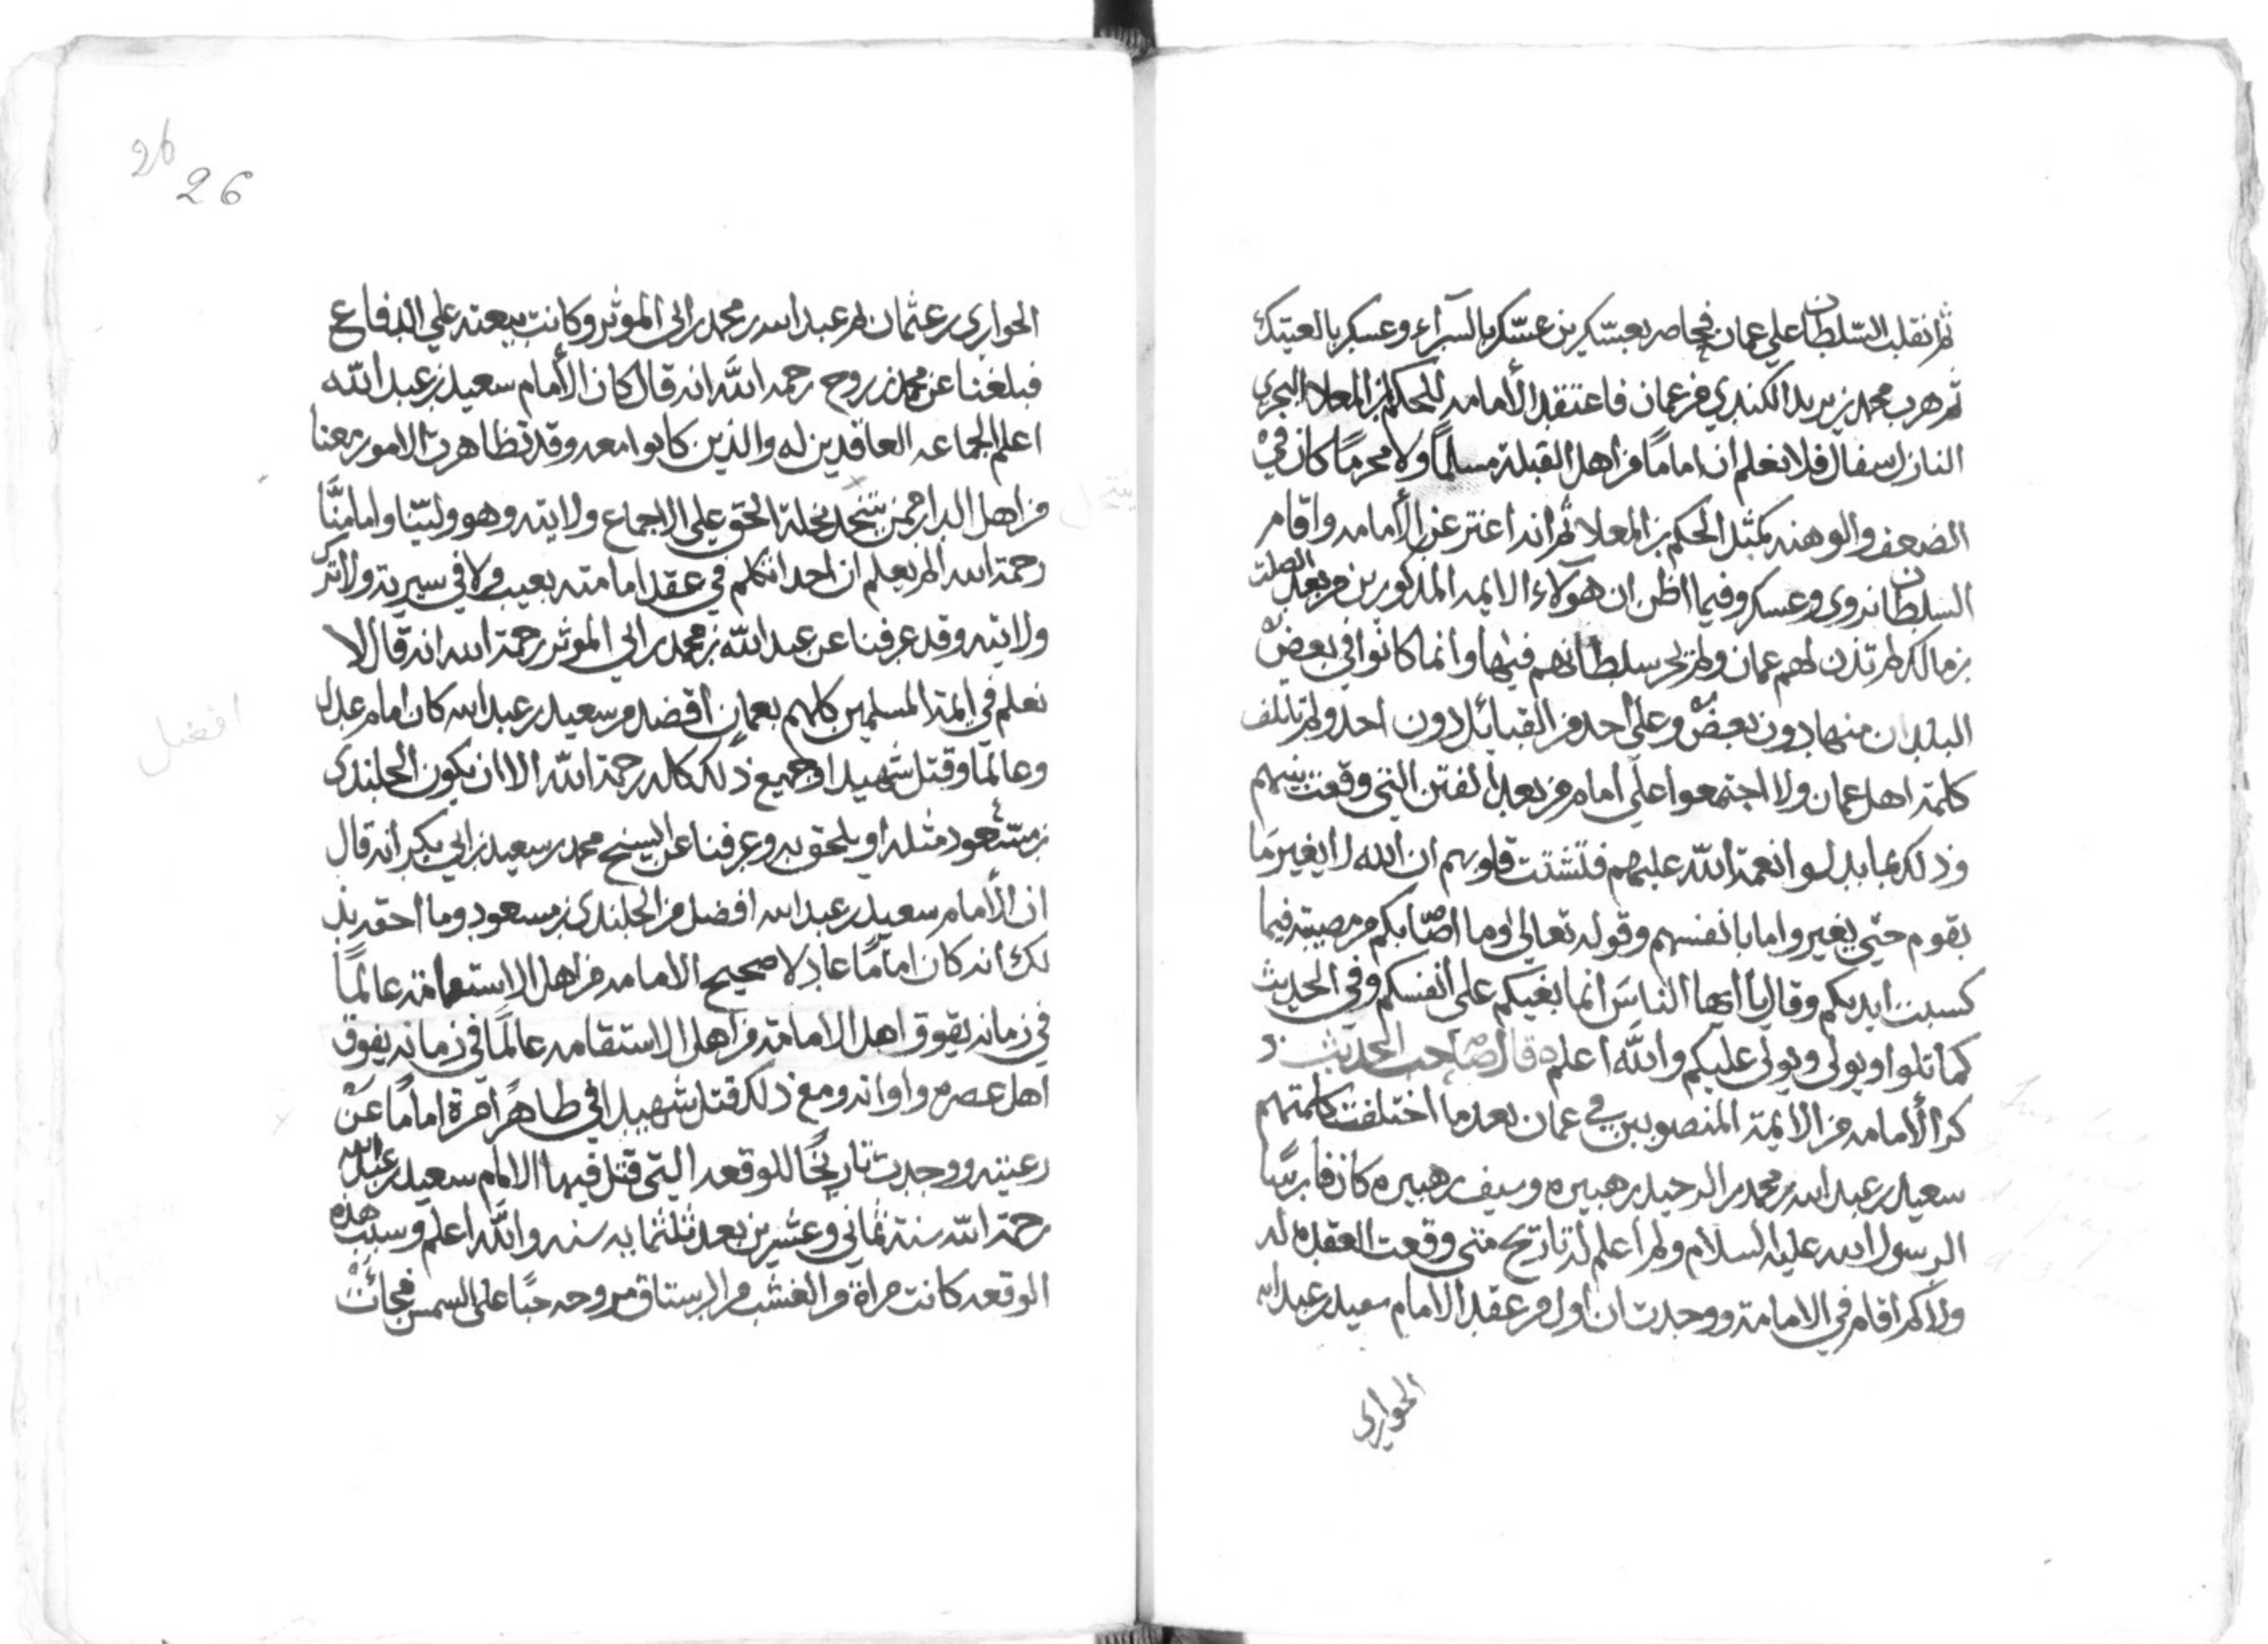 ثم انقلب السلطان علي عمان فحاصر بعسكرين عسكر بالسرآء وعسكر بالعتيك
ثم هرب محمد بن يزيد الكندي من عمان فاعتقد الأمامه للحكم بن المعلا البحري
النازل سفال فلا نعلم ان اماما من اهل القبلة مسلماً ولا مجرماً كان في
الضعف والوهنه كمثل الحكم بن المعلا ثم انه اعتزعن الأمامه واقام
السلطان نزوى وعسكر وفيما اظن ان هوآلاء الايمه المذكورين من بعد الصلت
بن مالك لم تذن لهم عمان ولم يجر سلطانهم فيها وانما كانوا في بعض
البلدان منها دون بعض وعلى احد من القبائل دون احد ولم تاتلف
كلمة اهل عمان ولا اجتمعوا على امام من بعد الفتن التي وقعت بينهم
وذلك بما بدلوا نعمة الله عليهم فتشتت قلوبهم ان الله لا يغير ما
بقوم حتي يغيروا ما بانفسهم وقوله تعالى وما اصابكم من مصيبة فيما
كسبت ايديكم وقال يا ايها الناس انما بغيكم على انفسكم وفي الحديث
كما تلوا ويولى ويولى عليكم والله اعلم قال صاحب الحديث ذ
كر الأمامه من الايمة المنصوبين في عمان بعد ما اختلفت كلمتهم
سعيد بن عبد الله بن محمد بن الرحيد بن هبيره وسيف بن هبيره كان فارسا
الرسول الله عليه السلام ولم اعلم له تاريخ متى وقعت العقده له
ولا كم اقام في الامامة ووجدت ان اول من عقد الامام سعيد بن عبد الله
الحواري
26
26
الحواري بن عثمان ثم عبد الله بن محمد بن ابى الموثر وكانت بيعته علي الدفاع
فبلغنا عن محمد بن روح رحمه الله انه قال كان الأمام سعيد بن عبد الله
اعلم الجماعه العاقدين له والذين كانوا معه وقد تظاهرت الامور معنا
من اهل الدار ممن ينتحد نحلة الحق على الاجماع ولايته وهو ولينا وامامنا
رحمة الله الم يعلم ان احدا تكلم في عقد امامته بعيب ولا في سيريته ولا ترك
ولايته وقد عرفنا عن عبد الله بن محمد بن ابي الموثر رحمة الله انه قال لا
نعلم في ايمة المسلمين كلهم بعمان اقضد من سعيد بن عبد الله كان امام عدل
وعالما وقتل شهيدا وجميع ذلك كاله رحمة الله الا ان يكون الجلندى
بن مسعود مثله او يلحق به وعرفنا عن الشيخ محمد بن سعيد بن ابي بكر انه قال
ان الأمام سعيد بن عبد الله افضل من الجلندى بن مسعود وما احقه بذ
لك انه كان اماما عادلا صحيح الامامه من اهل الاستعامة عالما
في زمانه يفوق اهل الامامة من اهل الاستقامه عالما في زمانه يفوق
اهل عصره واوانه ومع ذلك قتل شهيدا في ظاهر امرة اماما عن
رعيته ووجدت تاريخا للوقعه التي قتل فيها الامام سعيد بن عبد الله
رحمة الله سنة ثماني وعشرين بعد ثلثمايه سنه والله اعلم وسبب هذه
الوقعه كانت مراة من الغشب من الرستاق مروحه حبا على الشمس فجاءت
افضل
ينتحل